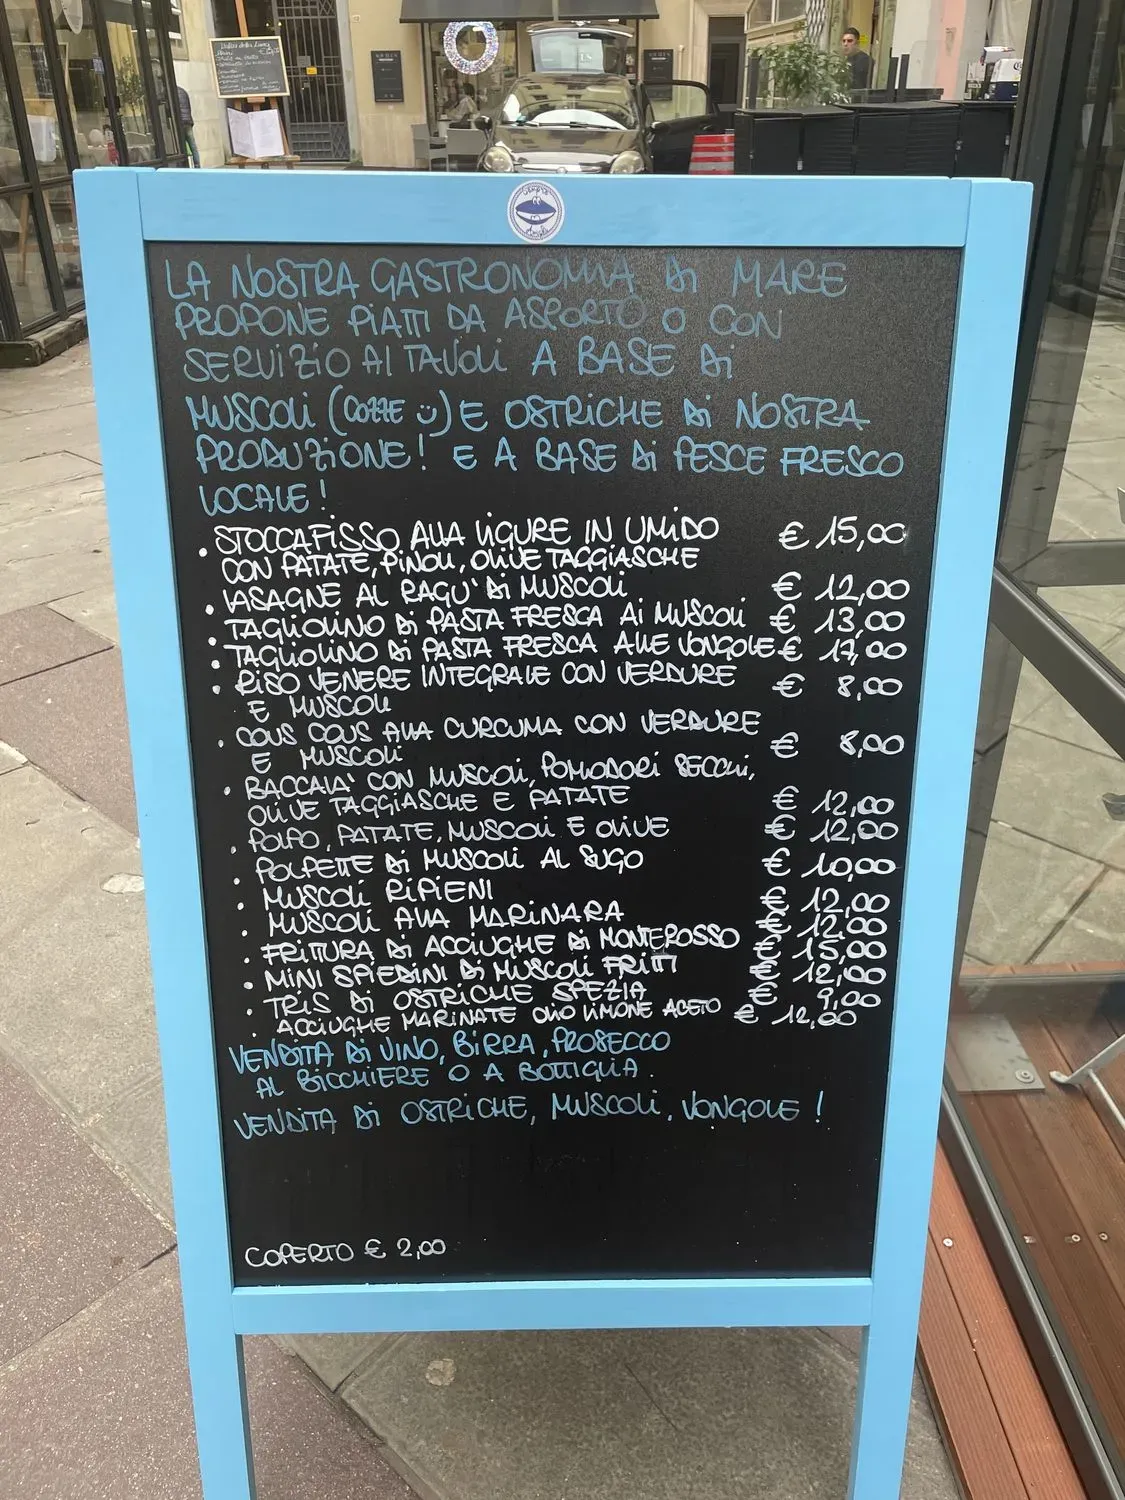 LA NOSTRA GASTRONOMIA di MARE
PROPONE PIATTI DA ASPORTO O CON
SERVIZIO AI TAVOLI A BASE di
MUSCOLI (COZZE ü) E OSTRICHE di NOSTRA
PRODUZIONE! E A BASE di PESCE FRESCO
LOCALE!
• STOCCAFISSO ALLA LIGURE IN UMIDO € 15,00
CON PATATE, PINOLI, OLIVE TAGGIASCHE
• LASAGNE AL RAGU' di MUSCOLI € 12,00
• TAGLIOLINO di PASTA FRESCA AI MUSCOLI € 13,00
• TAGLIOLINO di PASTA FRESCA ALLE VONGOLE € 17,00
• RISO VENERE INTEGRALE CON VERDURE € 8,00
E MUSCOLI
• COUS COUS ALLA CURCUMA CON VERDURE
E MUSCOLI € 8,00
• BACCALA' CON MUSCOLI, POMODORI SECCHI,
OLIVE TAGGIASCHE E PATATE € 12,00
• POLPO, PATATE, MUSCOLI E OLIVE € 12,00
• POLPETTE di MUSCOLI AL SUGO € 10,00
• MUSCOLI RIPIENI € 12,00
• MUSCOLI ALLA MARINARA € 12,00
• FRITTURA di ACCIUGHE di MONTEROSSO € 15,00
• MINI SPIEDINI di MUSCOLI FRITTI € 12,00
• TRIS di OSTRICHE SPEZIA € 9,00
• ACCIUGHE MARINATE OLIO LIMONE ACETO € 12,00
VENDITA di VINO, BIRRA, PROSECCO
AL BICCHIERE O A BOTTIGLIA.
VENDITA di OSTRICHE, MUSCOLI, VONGOLE!
COPERTO € 2,00